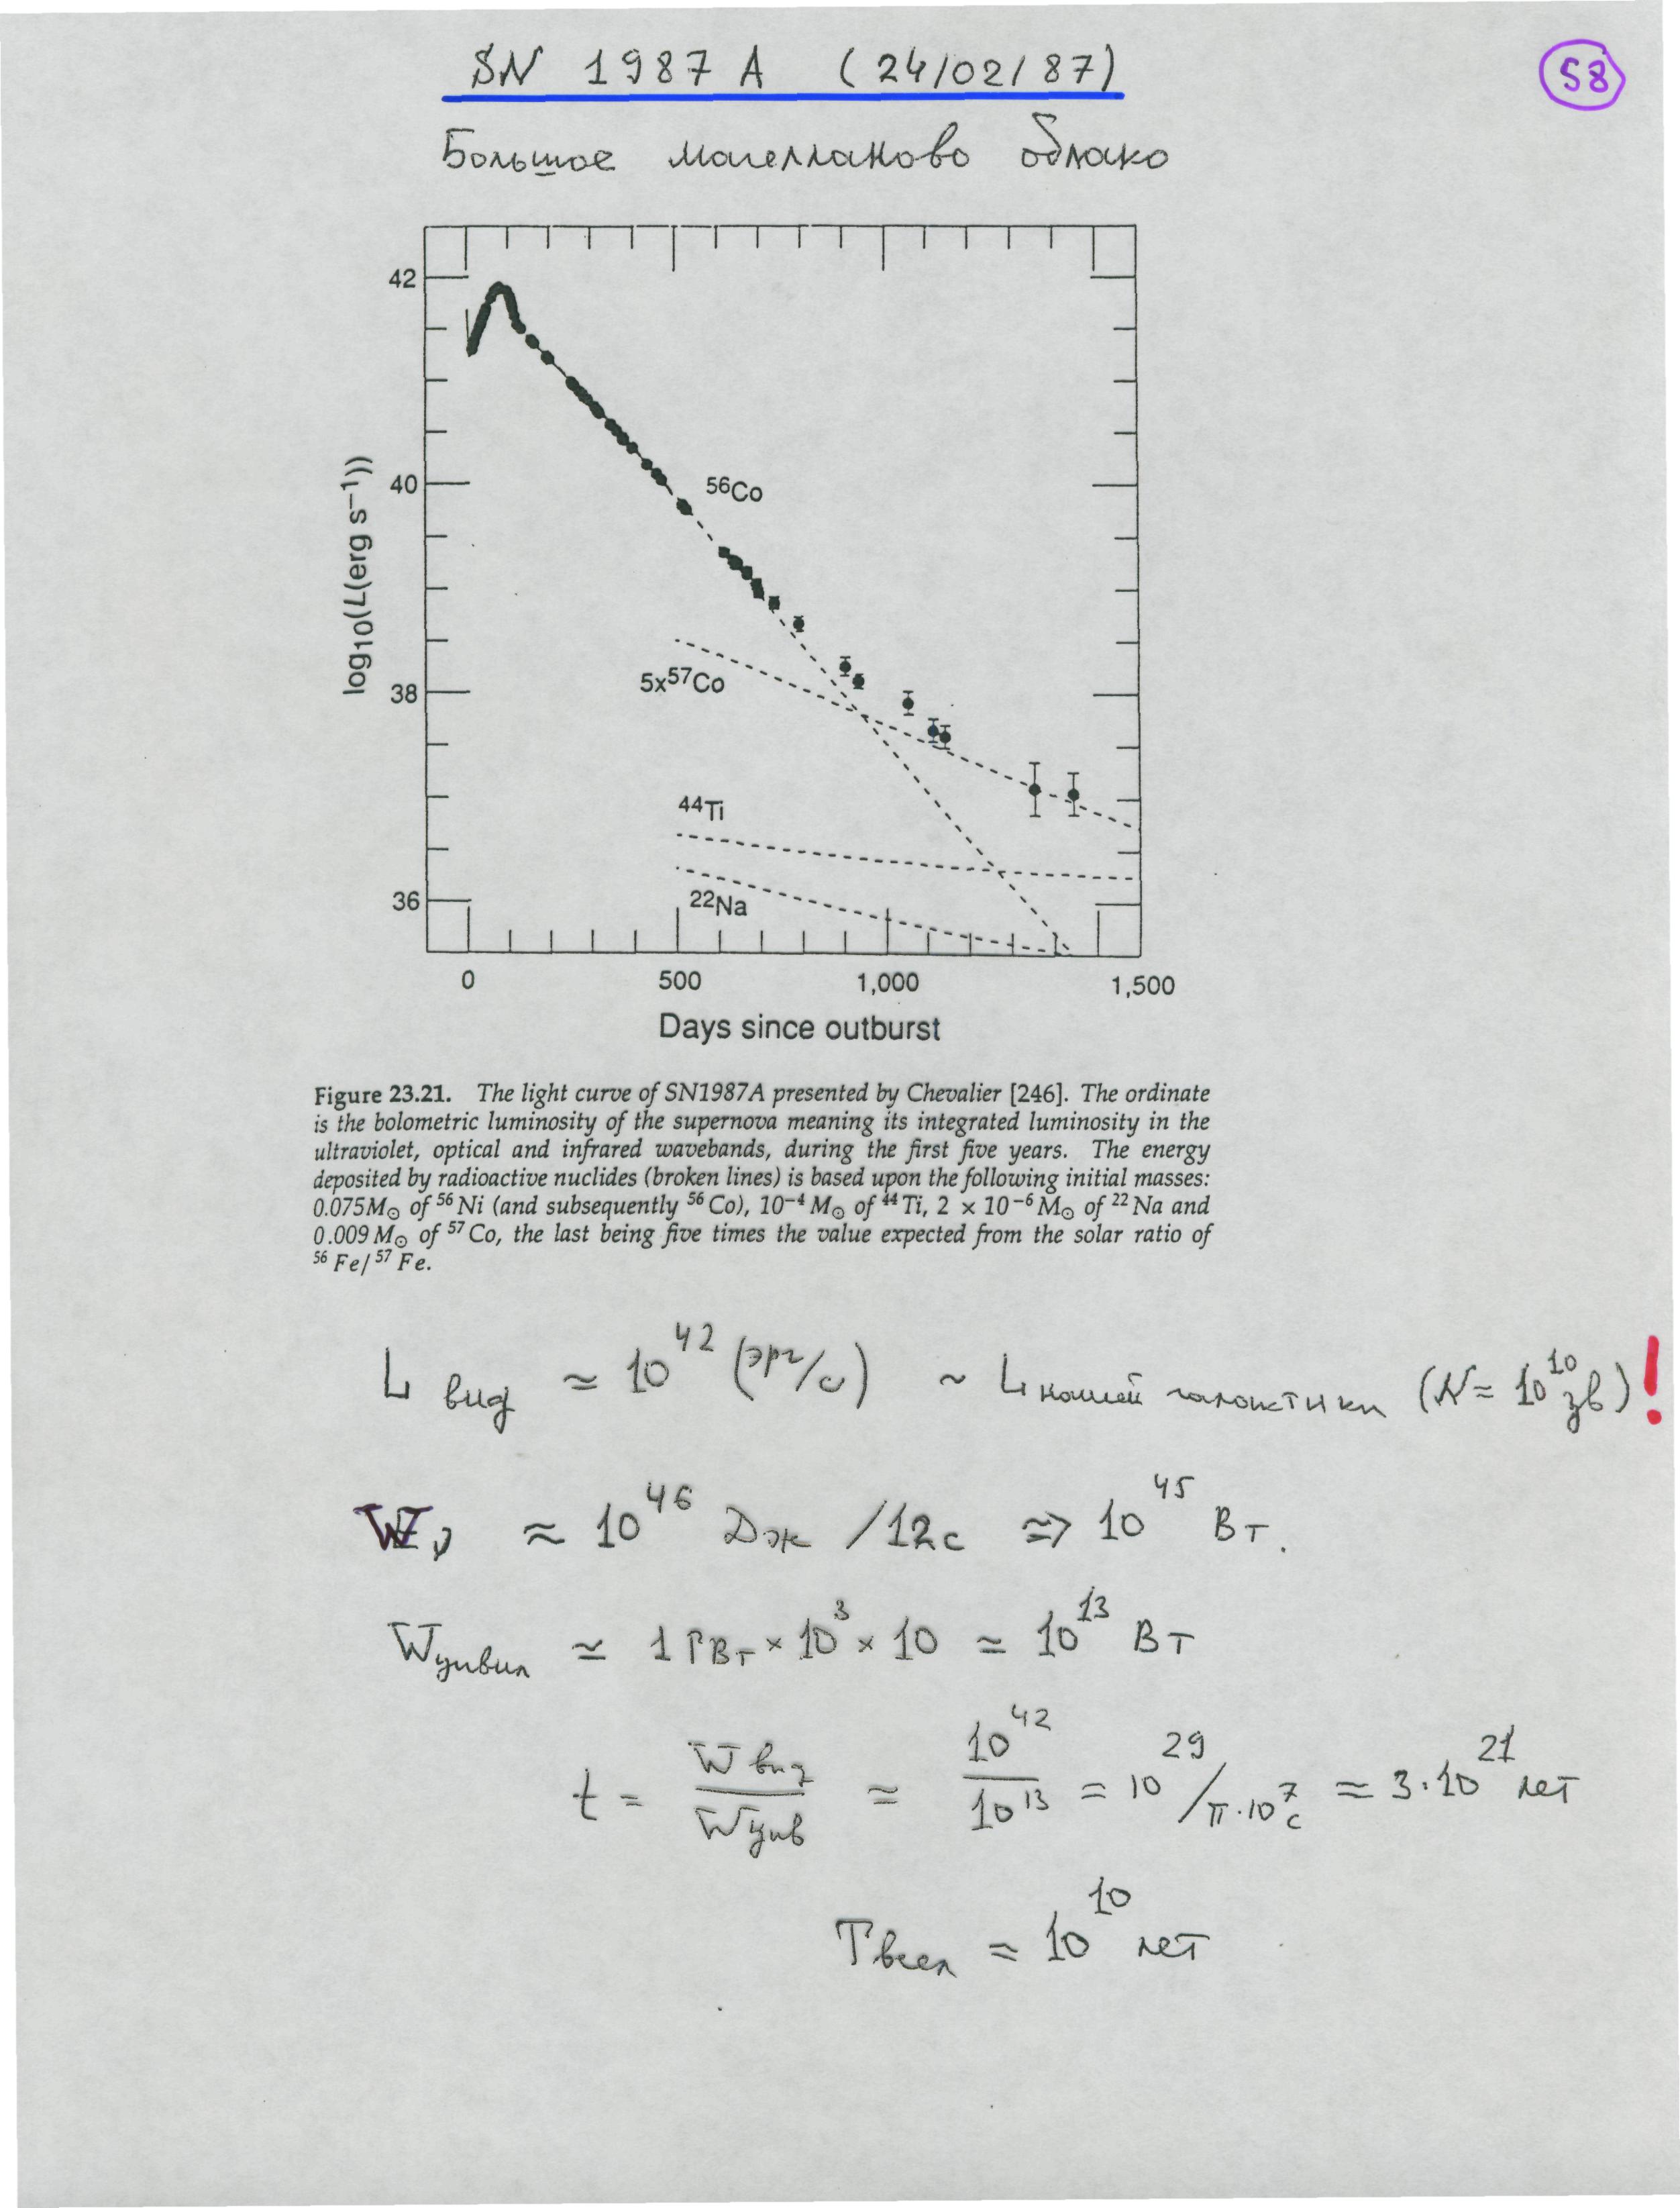 SN 1987 A (24/02/87)
58
Большое магелланово облако
42
40
38
36
log10(L(erg s−1))
56Co
5x57Co
44Ti
22Na
0 500 1,000 1,500
Days since outburst
Figure 23.21. The light curve of SN1987A presented by Chevalier [246]. The ordinate
is the bolometric luminosity of the supernova meaning its integrated luminosity in the
ultraviolet, optical and infrared wavebands, during the first five years. The energy
deposited by radioactive nuclides (broken lines) is based upon the following initial masses:
0.075M⊙ of 56Ni (and subsequently 56Co), 10−4 M⊙ of 44Ti, 2 × 10−6 M⊙ of 22Na and
0.009 M⊙ of 57Co, the last being five times the value expected from the solar ratio of
56Fe/57Fe.
L вид ≃ 10^42 (эрг/с) ~ L нашей галактики (N = 10^10 зв)!
Wν ≈ 10^46 Дж /12с ⇒ 10^45 Вт.
Wцивил ≃ 1 ГВт × 10^3 × 10 = 10^13 Вт
t = Wвид / Wцив ≃ 10^42 / 10^13 = 10^29 / π·10^7 с ≃ 3·10^21 лет
Tвсел ≈ 10^10 лет